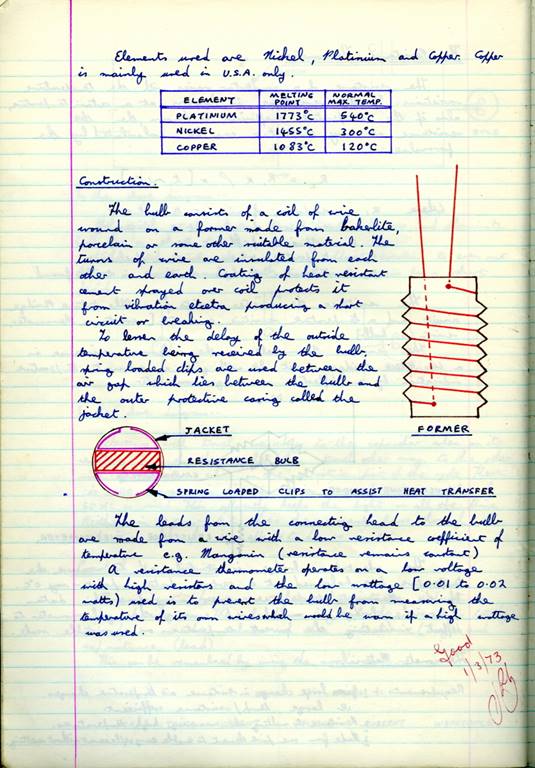 Elements used are Nickel, Platinium and Copper. Copper
is mainly used in U.S.A. only.
ELEMENT MELTING POINT NORMAL MAX. TEMP.
PLATINIUM 1773°C 540°C
NICKEL 1455°C 300°C
COPPER 1083°C 120°C
Construction.
The bulb consists of a coil of wire
wound on a former made from bakerlite,
porcelain or some other suitable material. The
turns of wire are insulated from each
other and earth. Coating of heat resistant
cement sprayed over coil protects it
from vibration etcetra producing a short
circuit or breaking.
To lessen the delay of the outside
temperature being received by the bulb,
spring loaded clips are used between the
air gap which lies between the bulb and
the outer protective casing called the
jacket.
FORMER
JACKET
RESISTANCE BULB
SPRING LOADED CLIPS TO ASSIST HEAT TRANSFER
The leads from the connecting head to the bulb
are made from a wire with a low resistance coefficient of
temperature e.g. Manganin (resistance remains constant)
A resistance thermometer operates on a low voltage
with high resistors and the low wattage [0.01 to 0.02
watts) used is to prevent the bulb from measuring the
temperature of its own wires which would be warm if a high wattage
was used.
Good
1/3/73